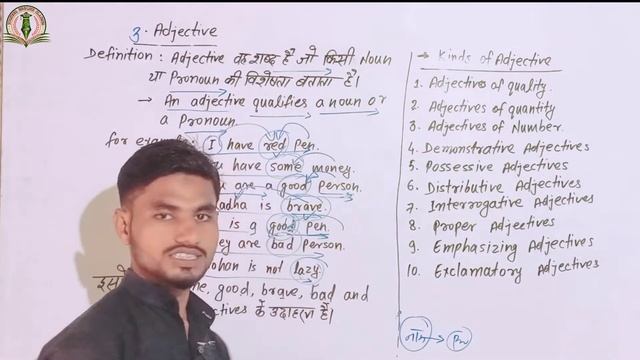 3. Adjective
Definition : Adjective वह शब्द है जो किसी Noun
या Pronoun की विशेषता बताता है।
→ An adjective qualifies a noun or
a Pronoun
for example: I have red Pen.
have some money.
are a good Person.
is brave.
is a good Pen.
are bad Person.
is not lazy.
good, brave, bad and
के उदाहरण हैं।
→ Kinds of Adjective
1. Adjectives of quality.
2. Adjectives of quantity
3. Adjectives of Number.
4. Demonstrative Adjectives
5. Possessive Adjectives
6. Distributive Adjectives
7. Interrogative Adjectives
8. Proper Adjectives
9. Emphasizing Adjectives
10. Exclamatory Adjectives